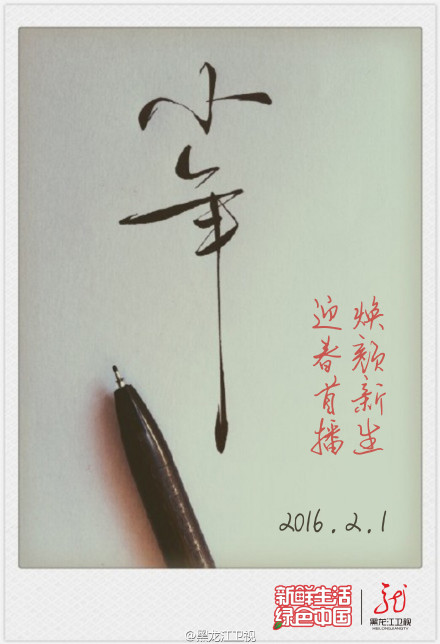 小年
焕颜新生
迎春首播
2016.2.1
新鲜生活
绿色中国
龙
黑龙江卫视
HEILONGJIANGTV
@黑龙江卫视